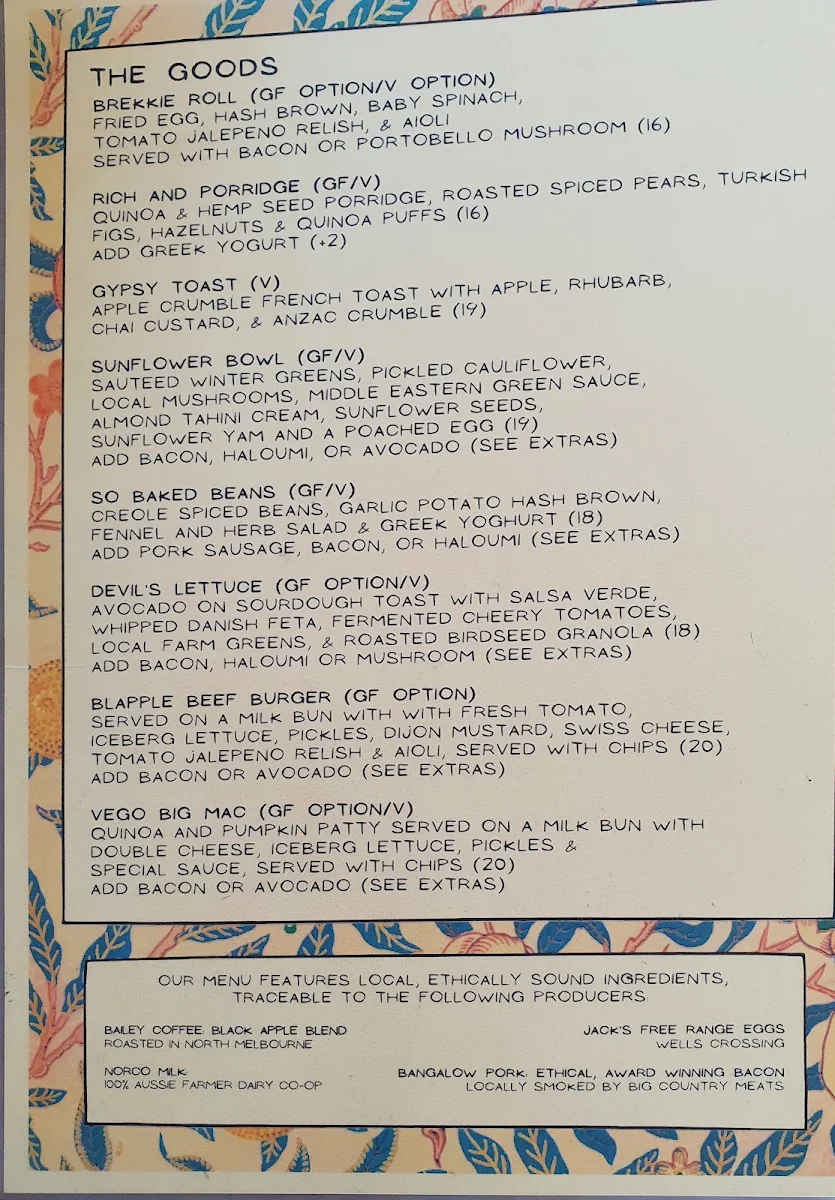 THE GOODS
BREKKIE ROLL (GF OPTION/V OPTION)
FRIED EGG, HASH BROWN, BABY SPINACH,
TOMATO JALEPENO RELISH, & AIOLI
SERVED WITH BACON OR PORTOBELLO MUSHROOM (16)
RICH AND PORRIDGE (GF/V)
QUINOA & HEMP SEED PORRIDGE, ROASTED SPICED PEARS, TURKISH
FIGS, HAZELNUTS & QUINOA PUFFS (16)
ADD GREEK YOGURT (+2)
GYPSY TOAST (V)
APPLE CRUMBLE FRENCH TOAST WITH APPLE, RHUBARB,
CHAI CUSTARD, & ANZAC CRUMBLE (19)
SUNFLOWER BOWL (GF/V)
SAUTEED WINTER GREENS, PICKLED CAULIFLOWER,
LOCAL MUSHROOMS, MIDDLE EASTERN GREEN SAUCE,
ALMOND TAHINI CREAM, SUNFLOWER SEEDS,
SUNFLOWER YAM AND A POACHED EGG (19)
ADD BACON, HALOUMI, OR AVOCADO (SEE EXTRAS)
SO BAKED BEANS (GF/V)
CREOLE SPICED BEANS, GARLIC POTATO HASH BROWN,
FENNEL AND HERB SALAD & GREEK YOGHURT (18)
ADD PORK SAUSAGE, BACON, OR HALOUMI (SEE EXTRAS)
DEVIL'S LETTUCE (GF OPTION/V)
AVOCADO ON SOURDOUGH TOAST WITH SALSA VERDE,
WHIPPED DANISH FETA, FERMENTED CHEERY TOMATOES,
LOCAL FARM GREENS, & ROASTED BIRDSEED GRANOLA (18)
ADD BACON, HALOUMI OR MUSHROOM (SEE EXTRAS)
BLAPPLE BEEF BURGER (GF OPTION)
SERVED ON A MILK BUN WITH WITH FRESH TOMATO,
ICEBERG LETTUCE, PICKLES, DIJON MUSTARD, SWISS CHEESE,
TOMATO JALEPENO RELISH & AIOLI, SERVED WITH CHIPS (20)
ADD BACON OR AVOCADO (SEE EXTRAS)
VEGO BIG MAC (GF OPTION/V)
QUINOA AND PUMPKIN PATTY SERVED ON A MILK BUN WITH
DOUBLE CHEESE, ICEBERG LETTUCE, PICKLES &
SPECIAL SAUCE, SERVED WITH CHIPS (20)
ADD BACON OR AVOCADO (SEE EXTRAS)
OUR MENU FEATURES LOCAL, ETHICALLY SOUND INGREDIENTS,
TRACEABLE TO THE FOLLOWING PRODUCERS:
BAILEY COFFEE: BLACK APPLE BLEND
ROASTED IN NORTH MELBOURNE
JACK'S FREE RANGE EGGS
WELLS CROSSING
NORCO MILK:
100% AUSSIE FARMER DAIRY CO-OP
BANGALOW PORK: ETHICAL, AWARD WINNING BACON
LOCALLY SMOKED BY BIG COUNTRY MEATS